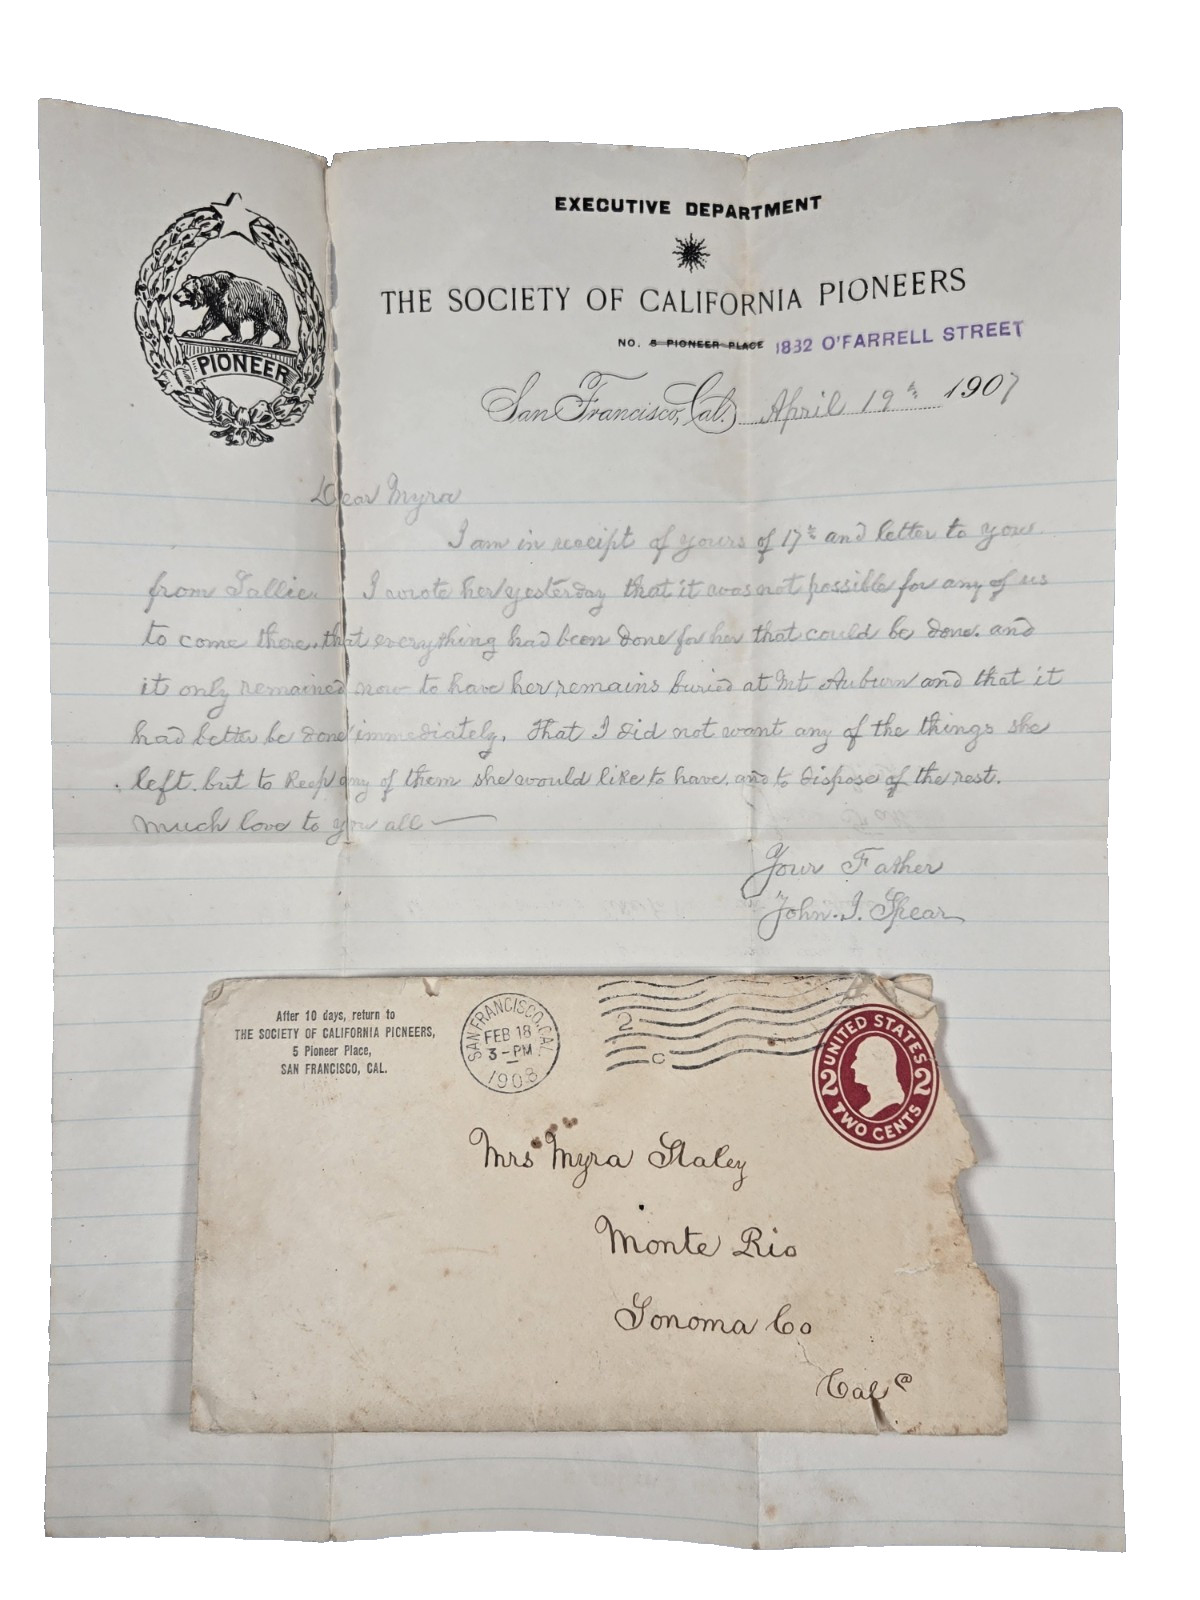 EXECUTIVE DEPARTMENT
THE SOCIETY OF CALIFORNIA PIONEERS
NO. 5 PIONEER PLACE 1832 O'FARRELL STREET
PIONEER
San Francisco, Cal. April 19th 1907
Dear Myra
I am in receipt of yours of 17th and letter to you
from Sallie. I wrote her yesterday that it was not possible for any of us
to come there, that everything had been done for her that could be done. and
it only remained now to have her remains buried at Mt Auburn and that it
had better be done immediately. That I did not want any of the things she
left. but to keep any of them she would like to have. and to dispose of the rest.
Much love to you all —
Your Father
John. I. Spear
After 10 days, return to
THE SOCIETY OF CALIFORNIA PIONEERS,
5 Pioneer Place,
SAN FRANCISCO, CAL.
SAN FRANCISCO, CAL.
FEB 18
3-PM
1908
2
C
UNITED STATES
2 2
TWO CENTS
Mrs Myra Staley
Monte Rio
Sonoma Co
Cala